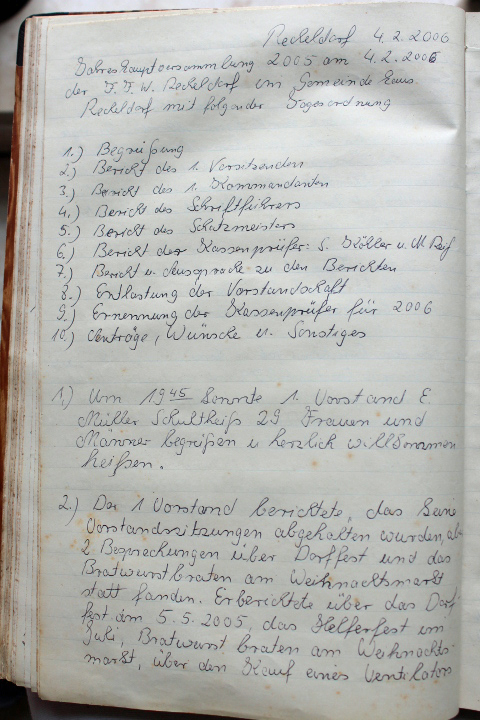 Reckeldorf 4.2.2006
Jahreshauptversammlung 2005 am 4.2.2006
der F.F.W. Reckeldorf im Gemeinde Haus
Reckeldorf mit folgender Tagesordnung
1.) Begrüßung
2.) Bericht des 1. Vorsitzenden
3.) Bericht des 1. Kommandanten
4.) Bericht des Schriftführers
5.) Bericht des Schatzmeisters
6.) Bericht der Kassenprüfer S. Köhler u. M.
7.) Bericht u. Aussprache zu den Berichten
8.) Entlastung der Vorstandschaft
9.) Ernennung der Kassenprüfer für 2006
10.) Anträge, Wünsche u. Sonstiges
1.) Um 19 45 konnte 1. Vorstand E.
Müller Schultheiß 29 Frauen und
Männer begrüßen u herzlich willkommen
heißen.
2.) Der 1 Vorstand berichtete, das keine
Vorstandsitzungen abgehalten wurden, ab
2 Besprechungen über Dorffest und das
Bratwurstbraten am Weihnachtsmarkt
statt fanden. Er berichtete über das Dorf
fest am 5.5.2005, das Helferfest im
Juli, Bratwurst braten am Weihnachts-
markt, über den Kauf eines Ventilators